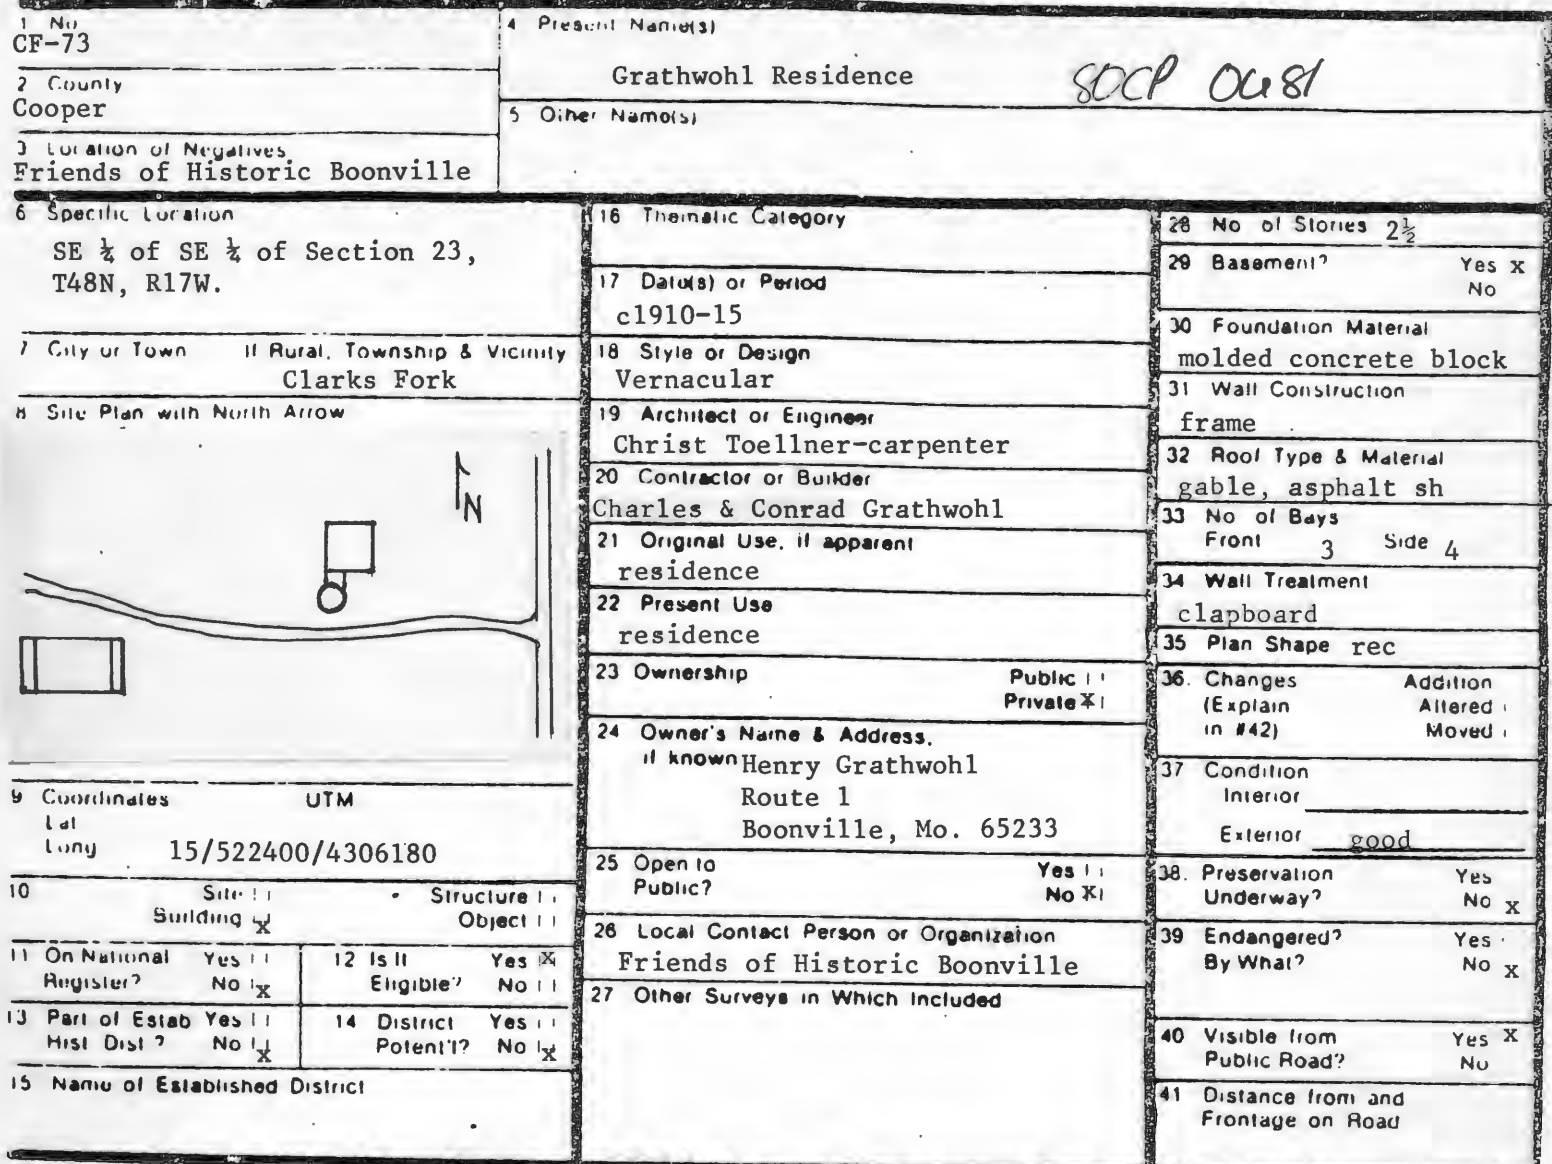 1 No
CF-73
2 County
Cooper
3 Location of Negatives
Friends of Historic Boonville
4 Present Name(s)
Grathwohl Residence
SOCP 0481
5 Other Name(s)
6 Specific Location
SE ¼ of SE ¼ of Section 23,
T48N, R17W.
7 City or Town If Rural, Township & Vicinity
Clarks Fork
8 Site Plan with North Arrow
N
9 Coordinates UTM
Lat
Long
15/522400/4306180
10 Site Structure
Building X Object
11 On National Yes
Register? No X
12 Is It Yes X
Eligible? No
13 Part of Estab Yes
Hist Dist? No X
14 District Yes
Potent'l? No X
15 Name of Established District
16 Thematic Category
17 Date(s) or Period
c1910-15
18 Style or Design
Vernacular
19 Architect or Engineer
Christ Toellner-carpenter
20 Contractor or Builder
Charles & Conrad Grathwohl
21 Original Use, if apparent
residence
22 Present Use
residence
23 Ownership Public
Private X
24 Owner's Name & Address,
if known Henry Grathwohl
Route 1
Boonville, Mo. 65233
25 Open to Yes
Public? No X
26 Local Contact Person or Organization
Friends of Historic Boonville
27 Other Surveys in Which Included
28 No of Stories 2½
29 Basement? Yes X
No
30 Foundation Material
molded concrete block
31 Wall Construction
frame
32 Roof Type & Material
gable, asphalt sh
33 No of Bays
Front 3 Side 4
34 Wall Treatment
clapboard
35 Plan Shape rec
36. Changes Addition
(Explain Altered
in #42) Moved
37 Condition
Interior
Exterior good
38. Preservation Yes
Underway? No X
39 Endangered? Yes
By What? No X
40 Visible from Yes X
Public Road? No
41 Distance from and
Frontage on Road